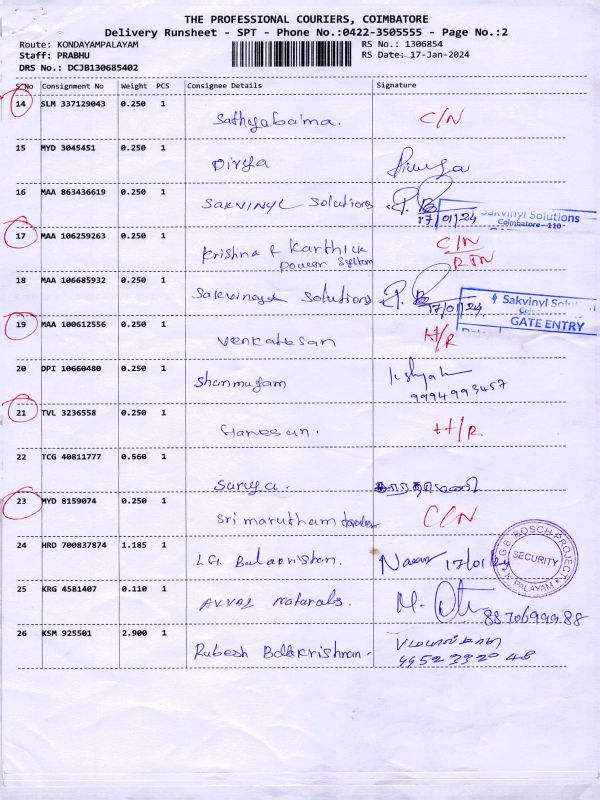 THE PROFESSIONAL COURIERS, COIMBATORE
Delivery Runsheet - SPT - Phone No.:0422-3505555 - Page No.:2
Route: KONDAYAMPALAYAM RS No.: 1306854
Staff: PRABHU RS Date: 17-Jan-2024
DRS No.: DCJB130685402
S No Consignment No Weight PCS Consignee Details Signature
14 SLM 337129043 0.250 1
Sathyabama. C/N
15 MYD 3045451 0.250 1
Divya Divya
16 MAA 863436619 0.250 1
Sakvinyl Solutions 17/01/24 Sakvinyl Solutions
Coimbatore - 110
17 MAA 106259263 0.250 1 C/N
Krishna & Karthick RTN
Power System
18 MAA 106685932 0.250 1
Solutions 17/01/24 Sakvinyl
GATE ENTRY
19 MAA 100612556 0.250 1
Venkatesan H/R
20 DPI 10660480 0.250 1
Shanmugam 9994993457
21 TVL 3236558 0.250 1
H/R
22 TCG 40811777 0.560 1
Surya.
23 MYD 8159074 0.250 1
Sri marutham C/N
24 HRD 700837874 1.185 1
LG. Balakrishnan. 17/01/24 BOSCH PROJECT
SECURITY
PALAYAM
25 KRG 4581407 0.110 1
Naturals. M. 8870699988
26 KSM 925501 2.900 1
Rubesh Balakrishnan.
9952332048